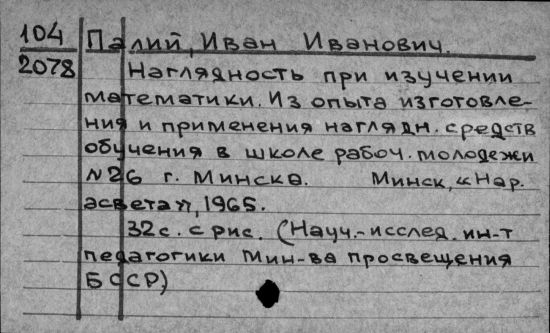 104
2078
Палий, Иван Иванович.
Наглядность при изучении
математики. Из опыта изготовле-
ния и применения наглядн. средств
обучения в школе рабоч. молодежи
№26 г. Минска. Минск, «Нар.
асвета», 1965.
32с. с рис. (Науч.-исслед. ин-т
педагогики Мин-ва просвещения
БССР)